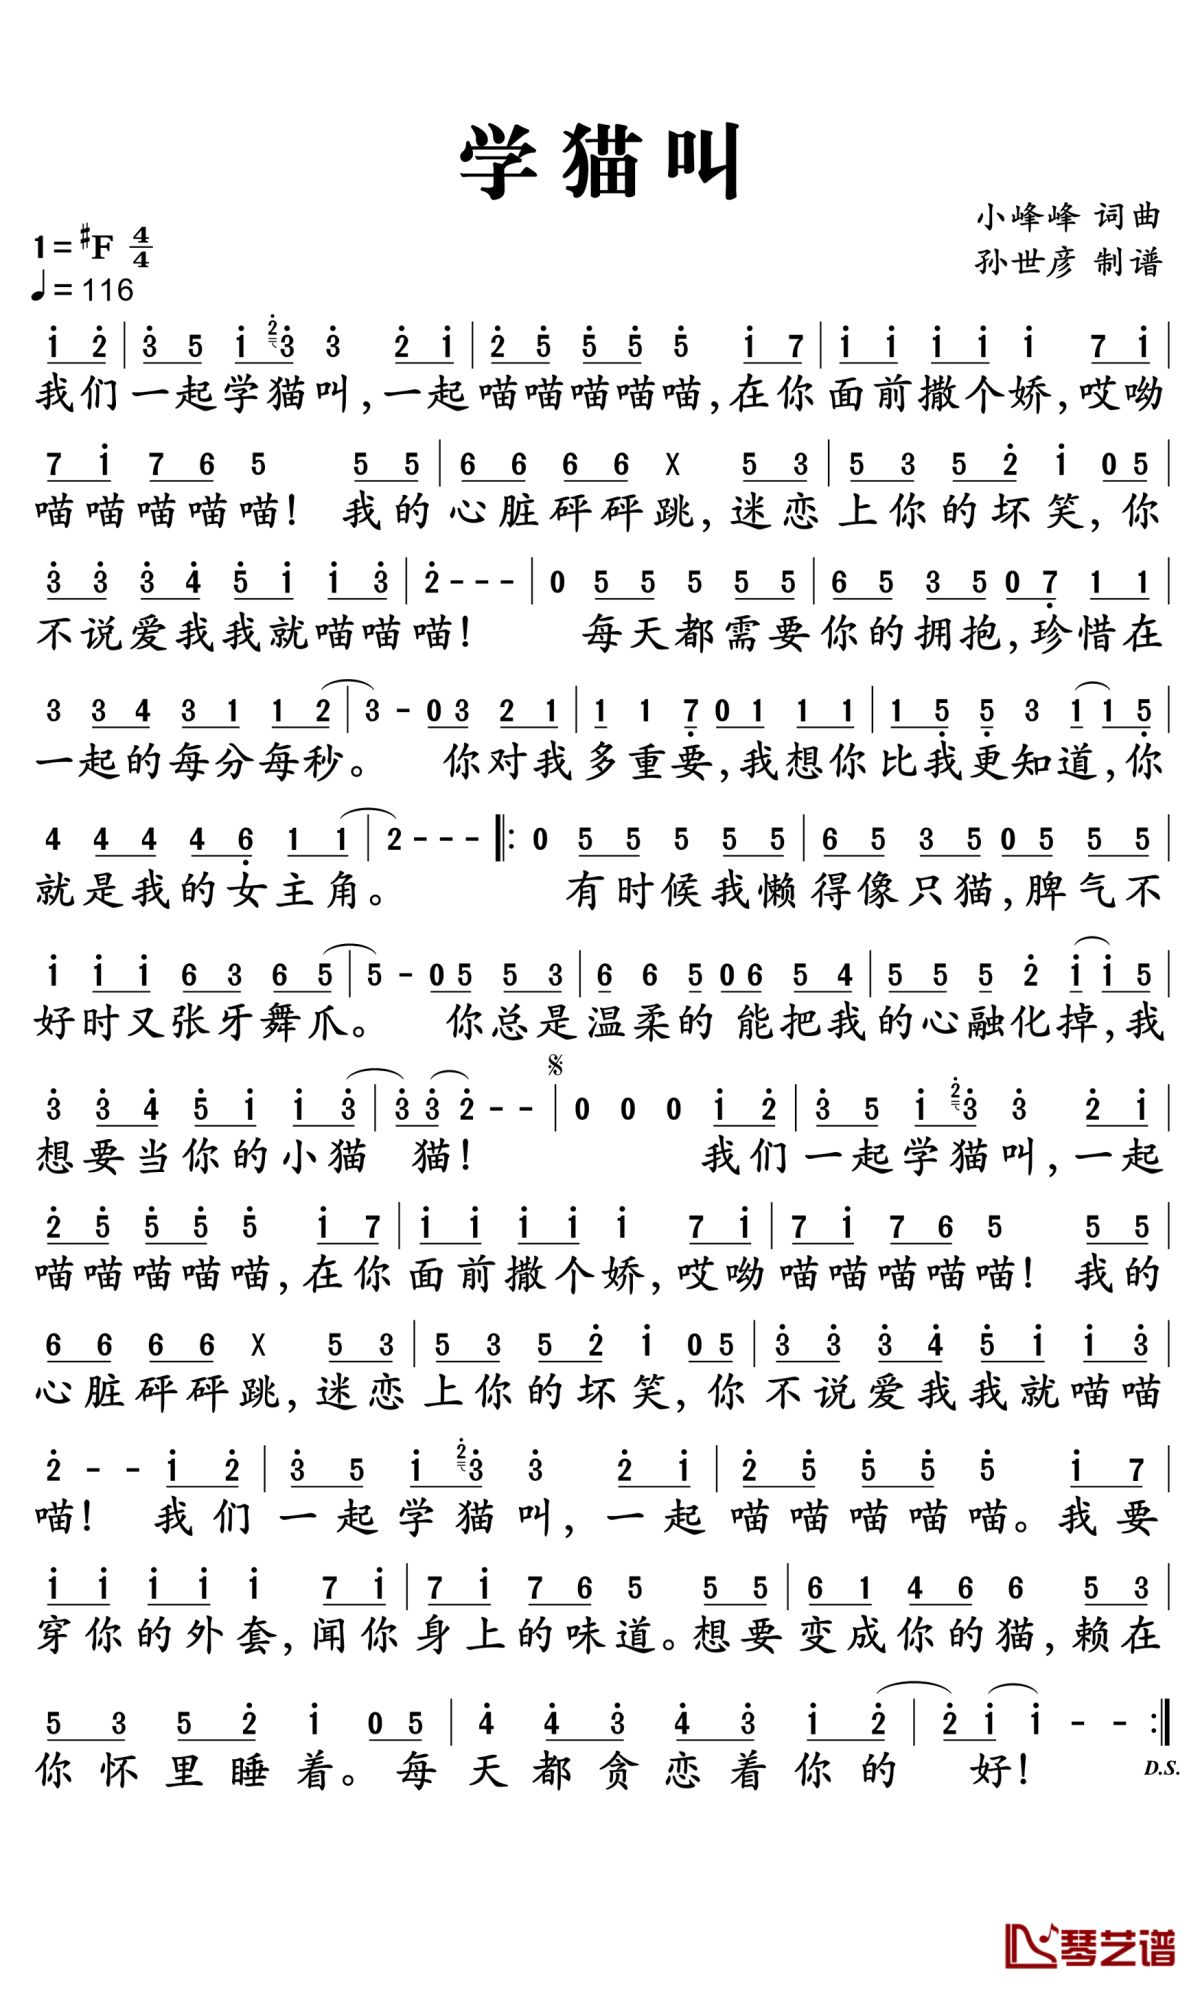 学猫叫
小峰峰 词曲
1=#F 4/4
孙世彦 制谱
♩=116
i 2 | 3 5 i 2 3 3 2 i | 2 5 5 5 5 i 7 | i i i i i 7 i |
我们一起学猫叫,一起喵喵喵喵喵,在你面前撒个娇,哎呦
7 i 7 6 5 5 5 | 6 6 6 6 X 5 3 | 5 3 5 2 i 0 5 |
喵喵喵喵喵! 我的心脏砰砰跳,迷恋上你的坏笑,你
3 3 3 4 5 i i 3 | 2 - - - | 0 5 5 5 5 5 | 6 5 3 5 0 7 1 1 |
不说爱我我就喵喵喵! 每天都需要你的拥抱,珍惜在
3 3 4 3 1 1 2 | 3 - 0 3 2 1 | 1 1 7 0 1 1 1 | 1 5 5 3 1 1 5 |
一起的每分每秒。 你对我多重要,我想你比我更知道,你
4 4 4 4 6 1 1 | 2 - - - ‖: 0 5 5 5 5 5 | 6 5 3 5 0 5 5 5 |
就是我的女主角。 有时候我懒得像只猫,脾气不
i i i 6 3 6 5 | 5 - 0 5 5 3 | 6 6 5 0 6 5 4 | 5 5 5 2 i i 5 |
好时又张牙舞爪。 你总是温柔的 能把我的心融化掉,我
𝄋
3 3 4 5 i i 3 | 3 3 2 - - | 0 0 0 i 2 | 3 5 i 2 3 3 2 i |
想要当你的小猫 猫! 我们一起学猫叫,一起
2 5 5 5 5 i 7 | i i i i i 7 i | 7 i 7 6 5 5 5 |
喵喵喵喵喵,在你面前撒个娇,哎呦喵喵喵喵喵! 我的
6 6 6 6 X 5 3 | 5 3 5 2 i 0 5 | 3 3 3 4 5 i i 3 |
心脏砰砰跳,迷恋上你的坏笑,你不说爱我我就喵喵
2 - - i 2 | 3 5 i 2 3 3 2 i | 2 5 5 5 5 i 7 |
喵! 我们一起学猫叫,一起喵喵喵喵喵。我要
i i i i i 7 i | 7 i 7 6 5 5 5 | 6 1 4 6 6 5 3 |
穿你的外套,闻你身上的味道。想要变成你的猫,赖在
5 3 5 2 i 0 5 | 4 4 3 4 3 i 2 | 2 i i - - :‖
你怀里睡着。每天都贪恋着你的 好!
D.S.
琴艺谱